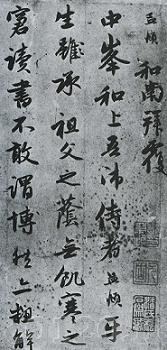 孟頫 和南拜覆
中峯和上吾師侍者孟頫平
生雖承祖父之蔭無飢寒之
窘讀書不敢謂博然亦粗解